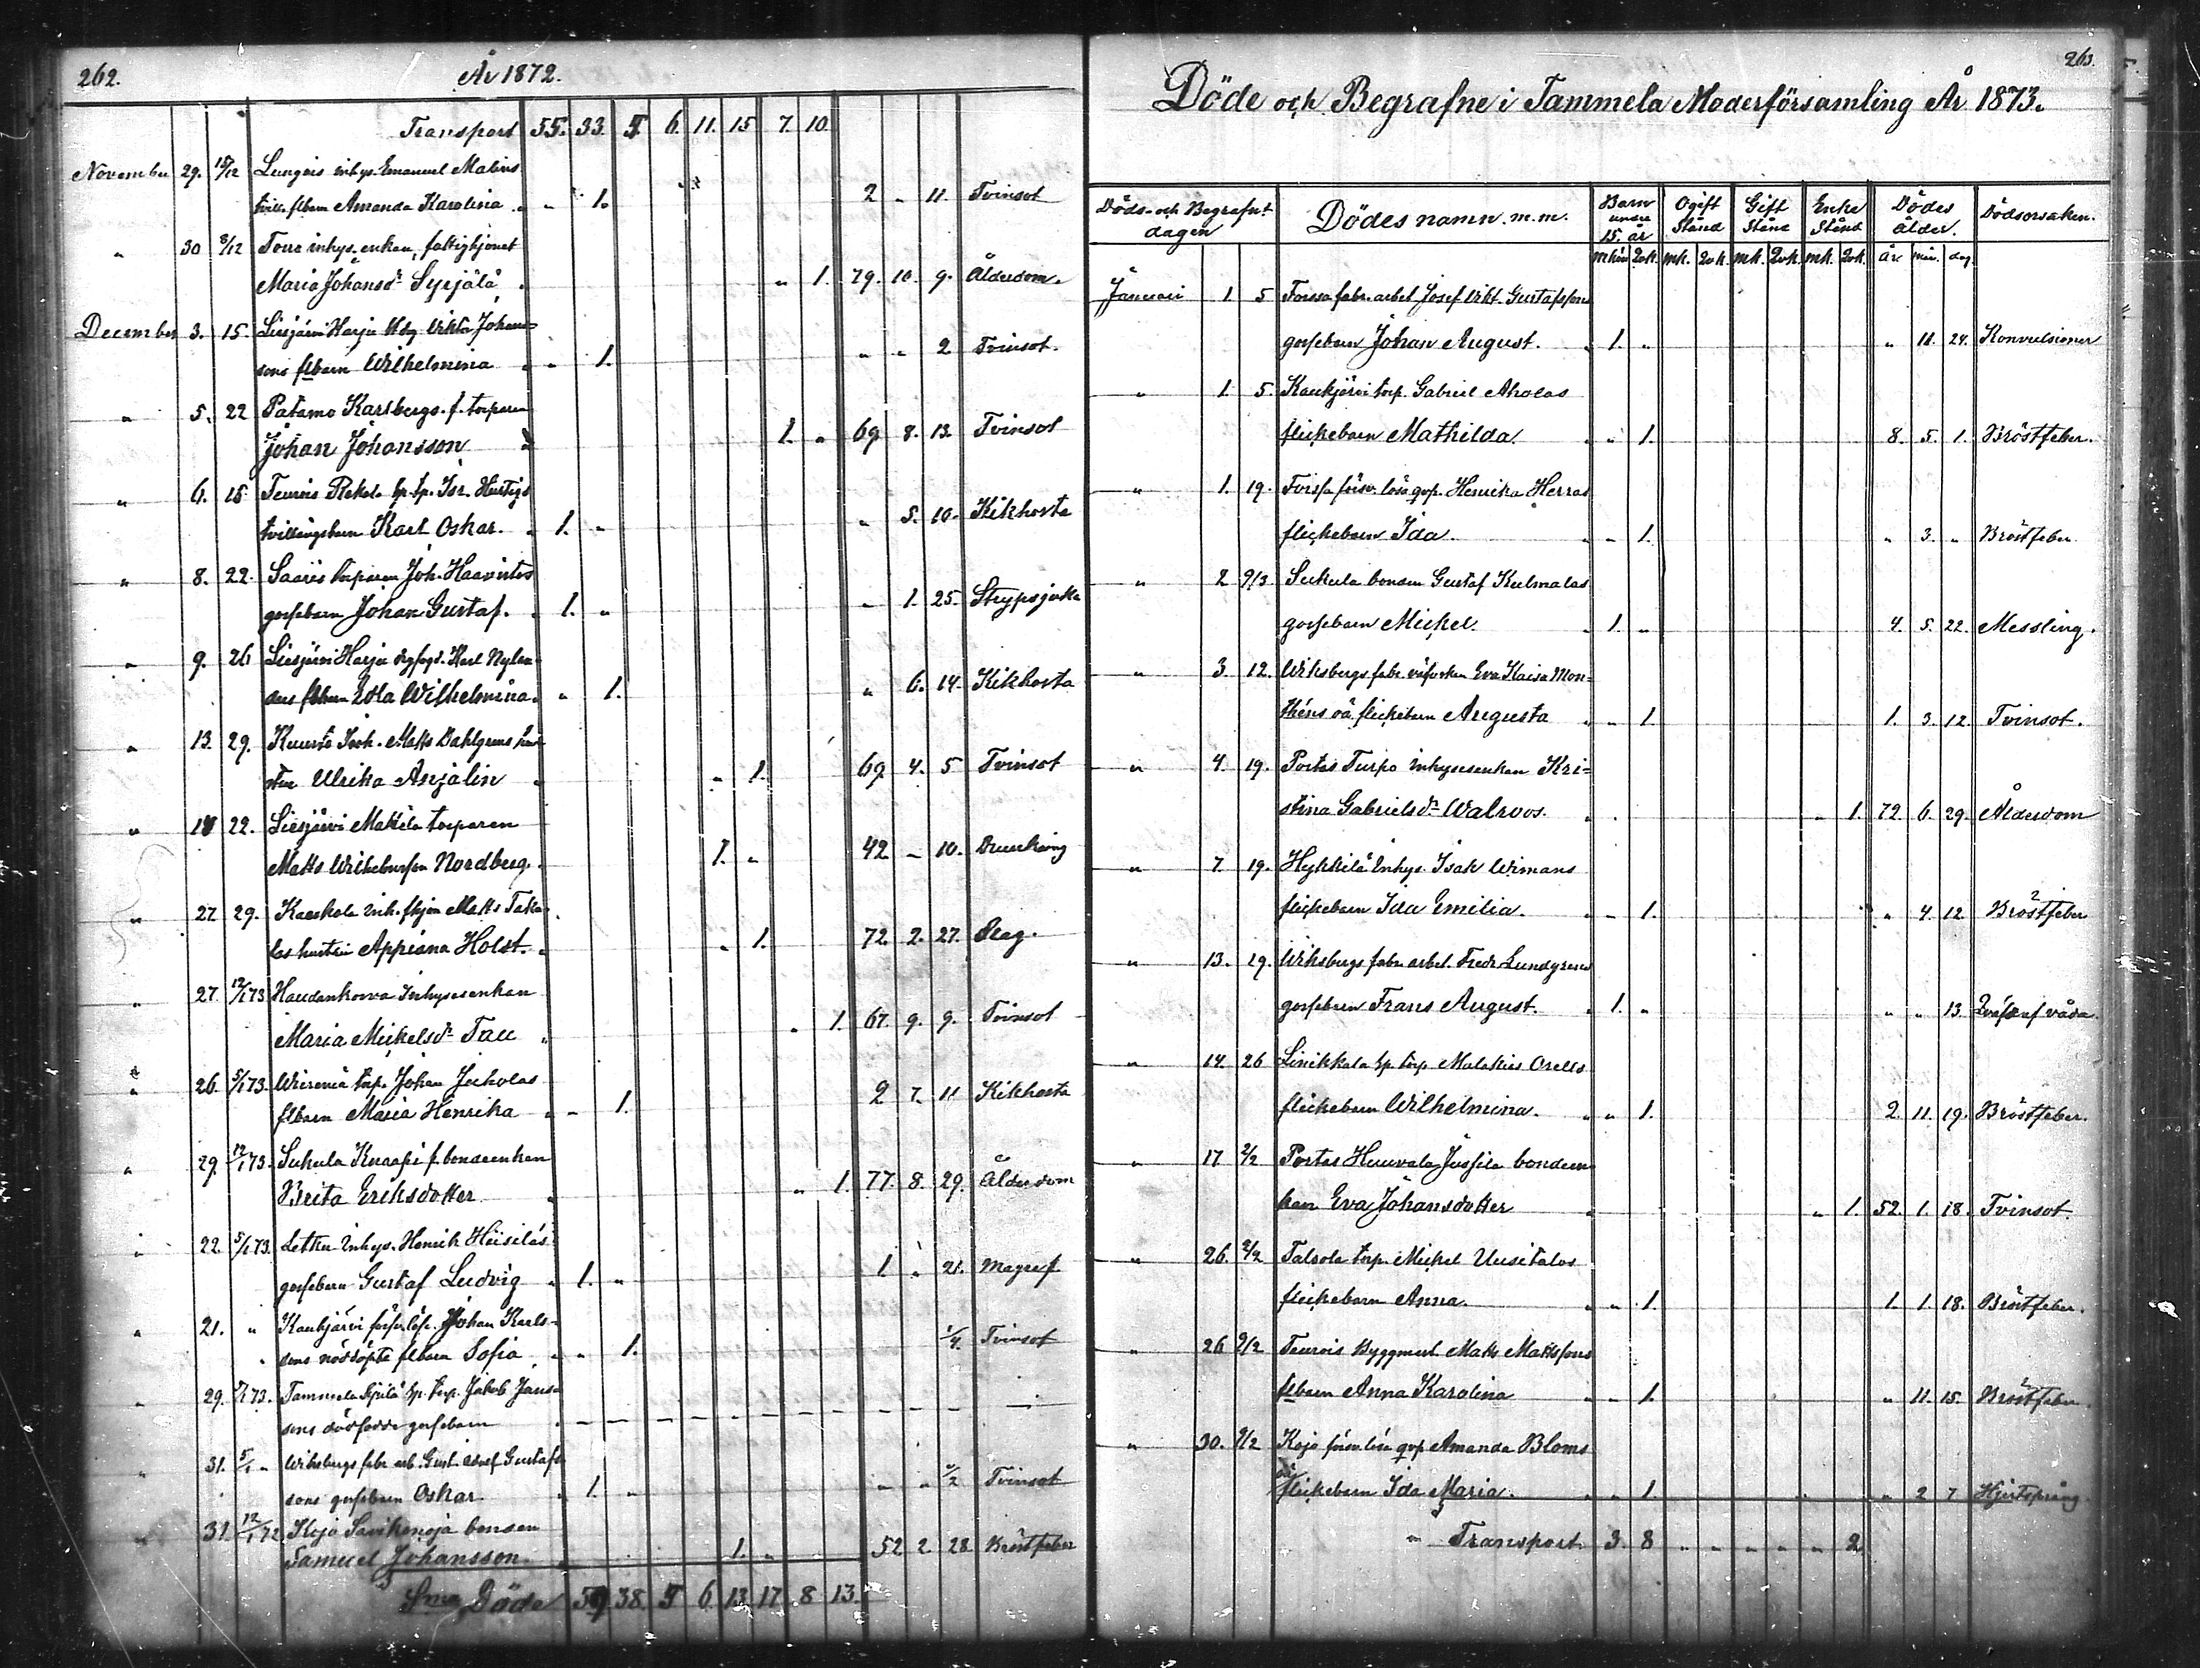 262.
År 1872.
Transport 55. 33. 5. 6. 11. 15 7. 10.
November 29. 15/12 Lungois inhys. Emanuel Malins
tvill. flbarn Amanda Karolina „ „ 1. 2 „ 11. Tvinsot
„ 30 8/12 Torro inhys.enkan, fattighjonet
Maria Johansdr Syrjälä „ 1. 79. 10. 9. Ålderdom.
December 3. 15. Liesjärvi Harju Viktor Johans-
sons flbarn Wilhelmina „ „ 1. „ „ 2 Tvinsot.
„ 5. 22 Patamo Karlbergs f. torparen
Johan Johansson 1. „ 69 8. 13. Tvinsot
„ 6. 15 Teuois Rekola sp.tp. Isr. Hurtigs
tvillingsbarn Karl Oskar. „ 1. „ „ 5. 10. Kikhosta
„ 8. 22. Saaris torparen Joh. Haavistos
gossebarn Johan Gustaf. „ 1. „ „ 1. 25. Strypsjuka
„ 9. 26 Liesjärvi Harju Karl Nylan-
ders flbarn Eda Wilhelmina. „ 1. „ 6. 14. Kikhosta
„ 13. 29. Kuusto Matts Dahlgrens hus-
tru Ulrika Anjalin „ „ 1. 69 4. 5 Tvinsot
„ 22. Liesjärvi Mattila torparen
Matts Wilhelmsson Nordberg. 1. „ 42 „ 10. Drunkning
„ 27 29. Kaukola inh. Matts Taka-
las hustru Appiana Holst. „ „ 1. 72. 2. 27. Slag.
„ 27. 12/1 73 Haudankorva Inhysesenkan
Maria Mickelsdr Tau „ „ 1. 67. 9. 9. Tvinsot
„ 26. 5/1 73. torp. Johan Juholas
flbarn Maria Henrika „ „ 1. 2 7. 11 Kikhosta
„ 29. 12/1 73. Sukula Knaapi f. bondeenkan
Brita Eriksdotter „ „ 1. 77. 8. 29. Ålderdom
„ 22. 5/1 73. Letku Inhys. Henrik Heisiläs
gossebarn Gustaf Ludvig „ 1. „ 1 „ 21. Magref
„ 21. „ Kaukjärvi Johan Karls-
„ sons nöddöpta flbarn Sofia „ „ 1. 1/4. Tvinsot
„ 29. 73. Tammela sp. torp. Jakob Jans-
sons dödfödde gossebarn
„ 31. 5/1 „ Wiksbergs fabr. arb. Gust. Adolf Gustafs-
sons gossebarn Oskar „ 1. „ „ „ 1/2 Tvinsot
„ 31. 12/1 72 Kojo Savikonoja bonden
Samuel Johansson. 1. „ 52 2. 28 Bröstfeber
Sma Döde 59 38. 5 6 13 17 8 13.
263.
Döde och Begrafne i Tammela Moderförsamling År 1873.
Döds- och Begrafn:s dagen Dödes namn m.m. Barn under 15. år Ogift Stånd Gift Stånd Enke Stånd Dödes ålder. Dödsorsaken.
mkön Qvk. mk. Qvk. mk. Qvk. mk. Qvk. år mån. dag
Januari 1. 5 Forssa fabr. arbet. Josef Vikt. Gustafssons
gossebarn Johan August. „ 1. „ „ 11. 24. Konvulsioner
„ 1. 5. Kaukjärvi torp. Gabriel Aholas
flickebarn Mathilda. „ „ 1. 8. 5. 1. Bröstfeber.
„ 1. 19. Forssa försv. lösa qvp. Henrika Herras
flickebarn Ida. „ „ 1. „ 3. „ Bröstfeber
„ 2 9/3 Sukula bonden Gustaf Kulmalas
gossebarn Mickel. „ 1. „ 4. 5. 22. Messling.
„ 3 12. Wiksbergs fabr. väfverskan Eva Kaisa Mon-
théns oä. flickebarn Augusta „ „ 1. 1. 3. 12. Tvinsot.
„ 4. 19. Portas Turpo inhysesenkan Kri-
stina Gabrielsdr Walroos. „ „ 1. 72. 6. 29. Ålderdom
„ 7. 19. Hykkilä Inhys. Isak Wimans
flickebarn Ida Emilia. „ „ 1. „ 4. 12. Bröstfeber
„ 13. 19. Wiksbergs fabr. arbet. Fredr. Lundgrens
gossebarn Frans August. „ 1. „ „ „ 13. Qväfd af våda.
„ 14. 26 Linikkala sp. torp. Malakias Orells
flickebarn Wilhelmina. „ „ 1. 2. 11. 19. Bröstfeber.
„ 17 2/2 Portas Huuvala Jussila bondeen-
kan Eva Johansdotter „ „ 1. 52. 1. 18. Tvinsot.
„ 26. 2/2 Talsola torp. Mickel Uusitalos
flickebarn Anna. „ „ 1. 1. 1. 18. Bröstfeber.
„ 26 9/2 Teurois Byggmest. Matts Mattssons
flbarn Anna Karolina „ „ 1. „ 11. 15. Bröstfeber.
„ 30. 9/2 Kojo försv. lösa qvp Amanda Bloms
oä flickebarn Ida Maria. „ „ 1. „ 2 7 Hjertsprång.
„ Transport. 3. 8 „ „ „ „ „ 2